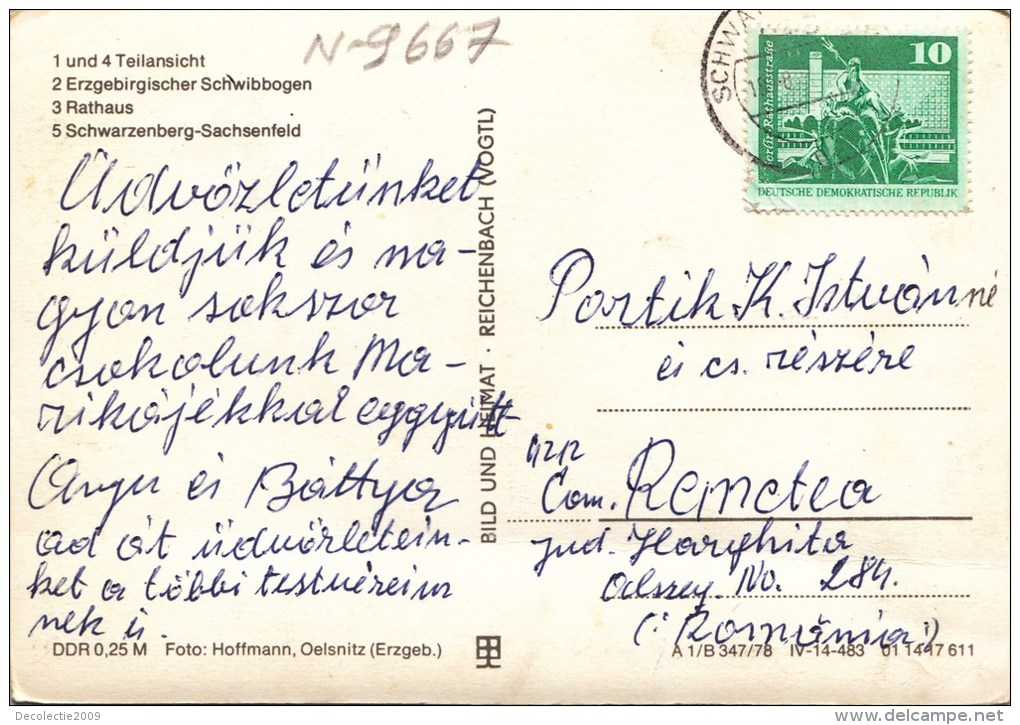 N-9667
1 und 4 Teilansicht
2 Erzgebirgischer Schwibbogen
3 Rathaus
5 Schwarzenberg-Sachsenfeld
Üdvözletünket
küldjük és na-
gyon sokszor
csokolunk Ma-
rikájékkal eggyütt
Anyu és Báttya
ad át üdvözletein-
ket a többi testvéreim
nek is.
DDR 0,25 M Foto: Hoffmann, Oelsnitz (Erzgeb.)
BILD UND HEIMAT · REICHENBACH (VOGTL)
SCHWA
10
Berlin, Rathausstraße
DEUTSCHE DEMOKRATISCHE REPUBLIK
Partik K. Istvánné
és cs. részére
Com. Remetea
jud. Harghita
No. 284.
(: România :)
A 1/B 347/78 IV-14-483 01 14 17 611
Decolectie2009